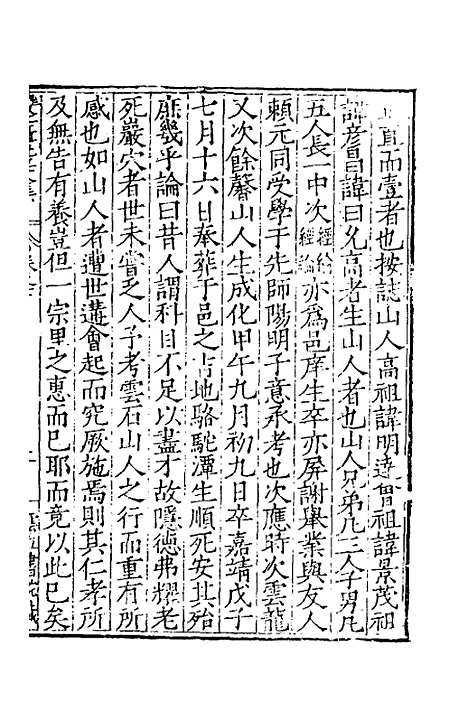 直而壹者也按誌山人高祖諱明遠曾祖諱景茂祖
諱彥昌曰諱曰允高者生山人者也山人兄弟凡三人子男凡
五人長一中次經綸經論亦為邑庠生卒亦屏謝舉業與友人
賴元同受學于先師陽明子意承考也次應時次雲龍
又次餘馨山人生成化甲午九月初九日卒嘉靖戊子
七月十六日奉葬于邑之吉地駱駝潭生順死安其殆
庶幾乎論曰昔人謂科目不足以盡才故隱德弗耀老
死巖穴者世未嘗乏人予考雲石山人之行而重有所
感也如山人者遭世遘會起而究厥施焉則其仁孝所
及無告有養豈但一宗里之惠而已耶而竟以此已矣